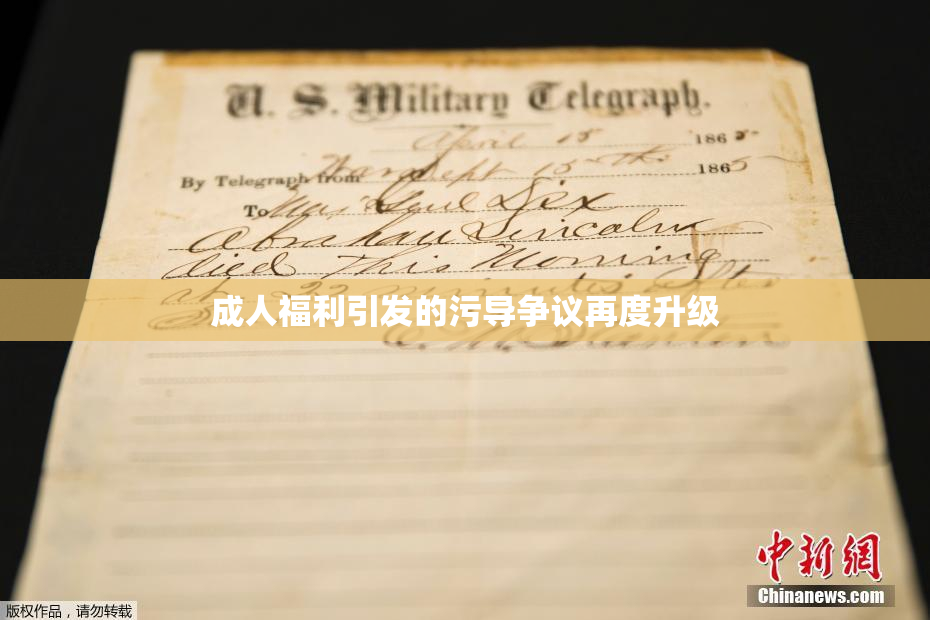 U. S. Military Telegraph.
April 15 1865
By Telegraph from War Dept 15th 1865
To Maj Genl Dix
Abraham Lincoln
died This Morning
at 22 minutes after
成人福利引发的污导争议再度升级
E. M. Stanton
中新網
Chinanews.com
版权作品，请勿转载